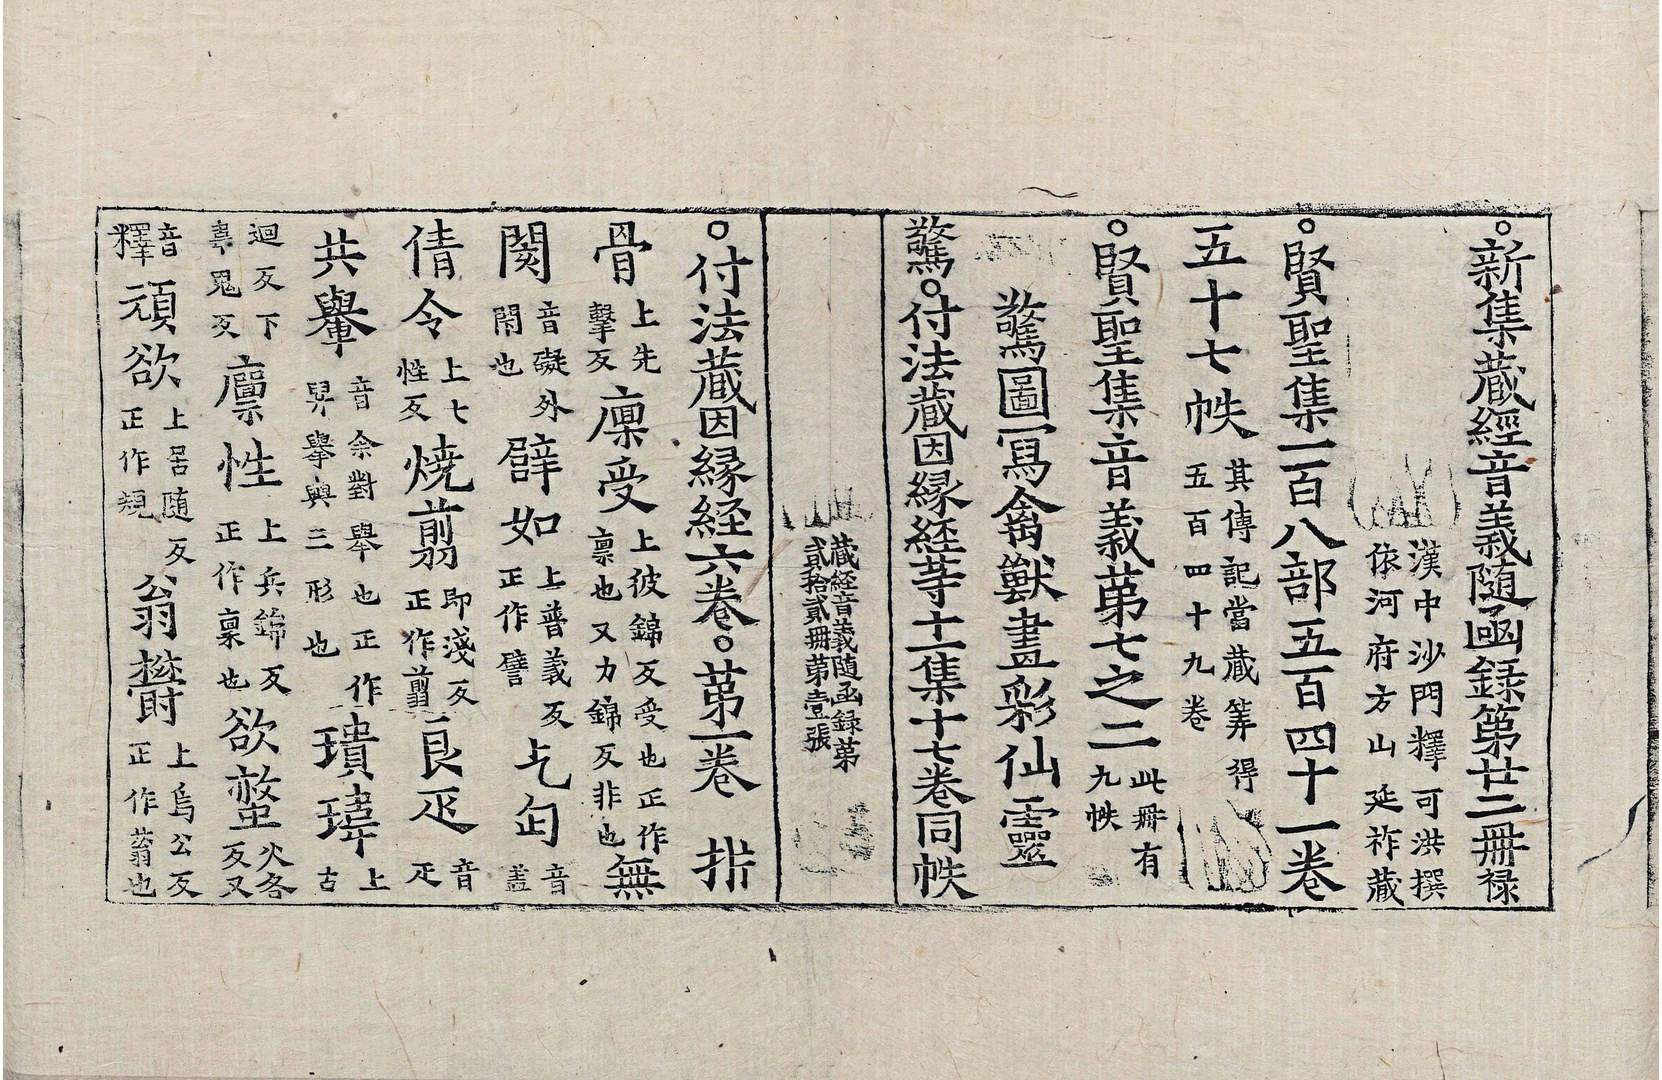 ○新集藏經音義隨函錄第廿二冊祿
漢中沙門釋可洪撰
依河府方山延祚藏
○賢聖集一百八部五百四十一卷
五十七帙其傳記當藏筭得
五百四十九卷
○賢聖集音義苐七之二此冊有
九帙
驚圖寫禽獸畫彩仙靈
驚○付法藏因縁経䓁十一集十七卷同帙
藏経音義隨函録第
貳拾貳冊苐壹張
○付法藏因縁経六卷○苐一卷 㭊
骨上先
擊反廩受上彼錦反受也正作
禀也又力錦反非也無
閡音礙外
閇也臂如上普義反
正作譬乞匃音
盖
倩令上七
性反燒翦即淺反
正作翦良疋音
疋
共轝音余對舉也正作
舁擧輿三形也璝瑋上古
迴反下
韋鬼反廪性上兵錦反
正作稟也欲螫火各
反又
音
釋頑欲上居随反
正作規翁欝上烏公反
正作蓊也